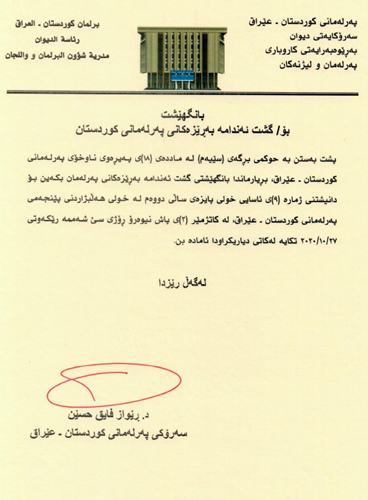 پەرلەمانی كوردستان - عێراق
سەرۆكایەتی دیوان
بەڕێوەبەرایەتی كاروباری
پەرلەمان و لیژنەكان
برلمان كوردستان - العراق
رئاسة الديوان
مديرية شؤون البرلمان واللجان
بانگهێشت
بۆ/ گشت ئەندامە بەڕێزەكانی پەرلەمانی كوردستان
پشت بەستن بە حوكمی بڕگەی (سێیەم) لە ماددەی (١٨)ی پەیڕەوی ناوخۆی پەرلەمانی
كوردستان - عێراق، بڕیارماندا بانگهێشتی گشت ئەندامە بەڕێزەكانی پەرلەمان بكەین بۆ
دانیشتنی ژمارە (٩)ی ئاسایی خولی پایزەی ساڵی دووەم لە خولی هەڵبژاردنی پێنجەمی
پەرلەمانی كوردستان - عێراق، لە كاتژمێر (٢)ی پاش نیوەڕۆ ڕۆژی سێ شەممە رێكەوتی
٢٠٢٠/١٠/٢٧ تكایە لەكاتی دیاریكراودا ئامادە بن.
لەگەڵ رێزدا
د. ڕێواز فایق حسێن
سەرۆكی پەرلەمانی كوردستان - عێراق